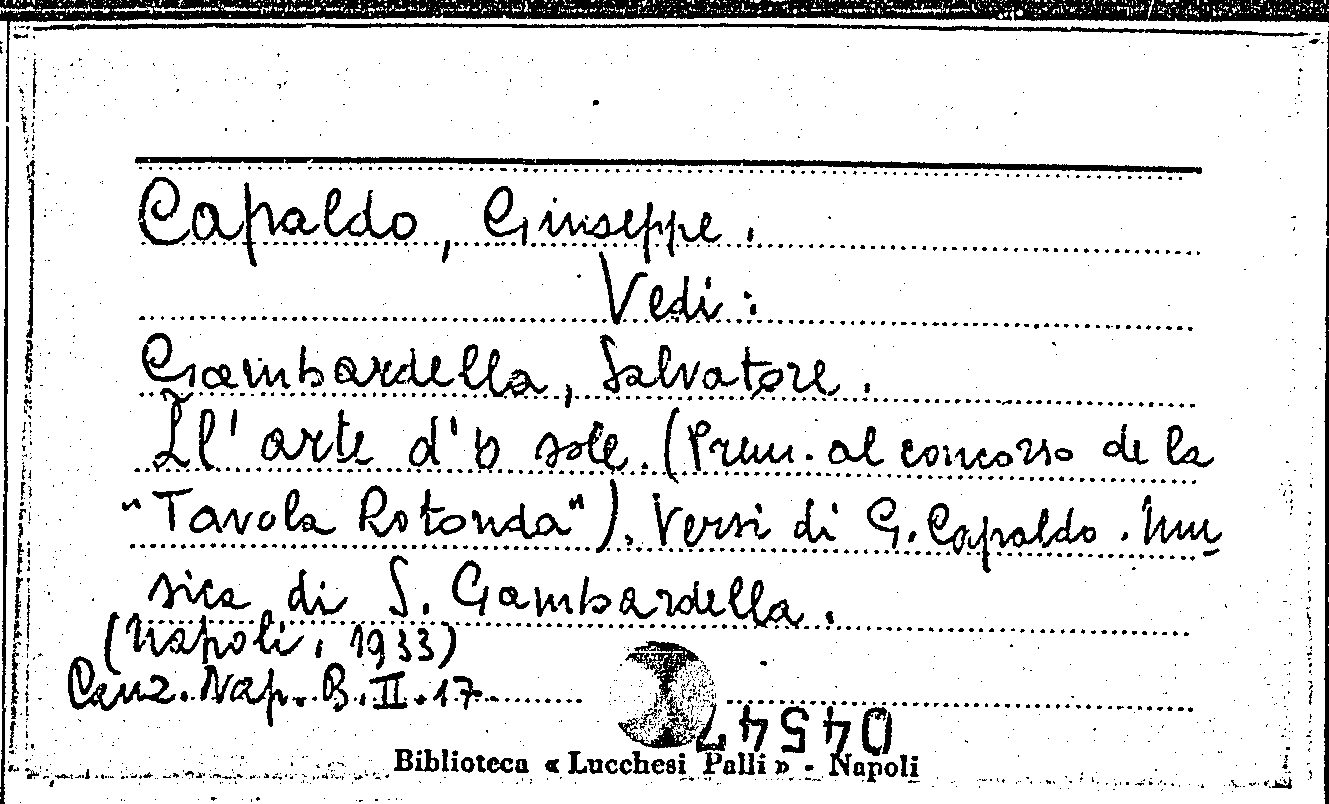 Capaldo, Giuseppe.
Vedi:
Gambardella, Salvatore.
Ll' arte d' 'o sole. (Prem. al concorso de la
"Tavola Rotonda"). Versi di G. Capaldo. Mu
sica di S. Gambardella.
(Napoli, 1933)
Canz. Nap. B. II. 17.
04547
Biblioteca « Lucchesi Palli » - Napoli